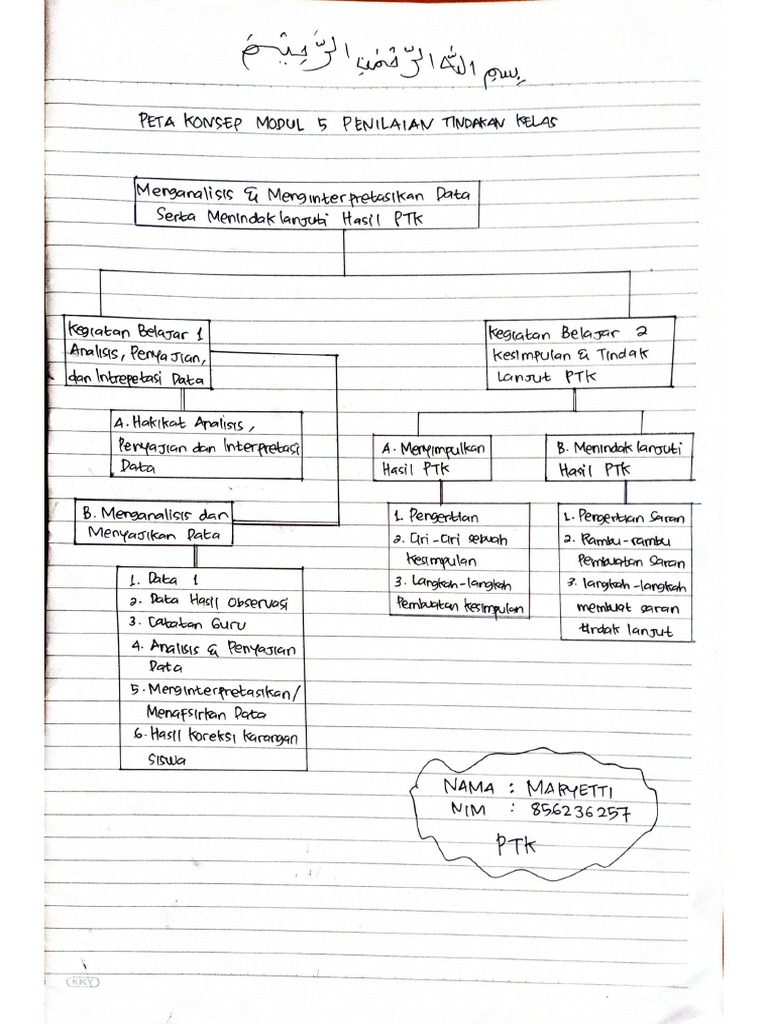 بِسْمِ اللّٰهِ الرَّحْمٰنِ الرَّحِيْمَ
PETA KONSEP MODUL 5 PENILAIAN TINDAKAN KELAS
Menganalisis & Menginterpretasikan Data
Serta Menindak lanjuti Hasil PTK
Kegiatan Belajar 1
Analisis, Penyajian,
dan Intrepetasi Data
A. Hakikat Analisis,
Penyajian dan Interpretasi
Data
B. Menganalisis dan
Menyajikan Data
1. Data 1
2. Data Hasil Observasi
3. Catatan Guru
4. Analisis & Penyajian
Data
5. Menginterpretasikan/
Menafsirkan Data
6. Hasil Koreksi Karangan
Siswa
Kegiatan Belajar 2
Kesimpulan & Tindak
Lanjut PTK
A. Menyimpulkan
Hasil PTK
1. Pengertian
2. Ciri-Ciri sebuah
kesimpulan
3. Langkah-langkah
Pembuatan kesimpulan
B. Menindak lanjuti
Hasil PTK
1. Pengertian Saran
2. Rambu-rambu
Pembuatan Saran
3. langkah-langkah
membuat saran
tindak lanjut
NAMA : MARYETTI
NIM : 856236257
PTK
KKY